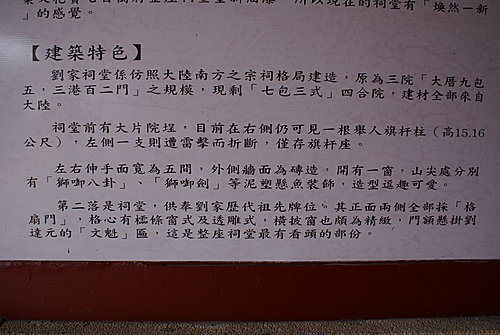 」的感覺。
【建築特色】
劉家祠堂係仿照大陸南方之宗祠格局建造，原為三院「大厝九包
五，三港百二門」之規模，現剩「七包三式」四合院，建材全部來自
大陸。
祠堂前有大片院埕，目前在右側仍可見一根舉人旗杆柱（高15.16
公尺），左側一支則遭雷擊而折斷，僅存旗杆座。
左右伸手面寬為五間，外側牆面為磚造，開有一窗，山尖處分別
有「獅啣八卦」、「獅啣劍」等泥塑懸魚裝飾，造型逗趣可愛。
第二落是祠堂，供奉劉家歷代祖先牌位。其正面兩側全部採「格
扇門」，格心有櫺條窗式及透雕式，橫披窗也頗為精緻，門額懸掛劉
達元的「文魁」匾，這是整座祠堂最有看頭的部份。